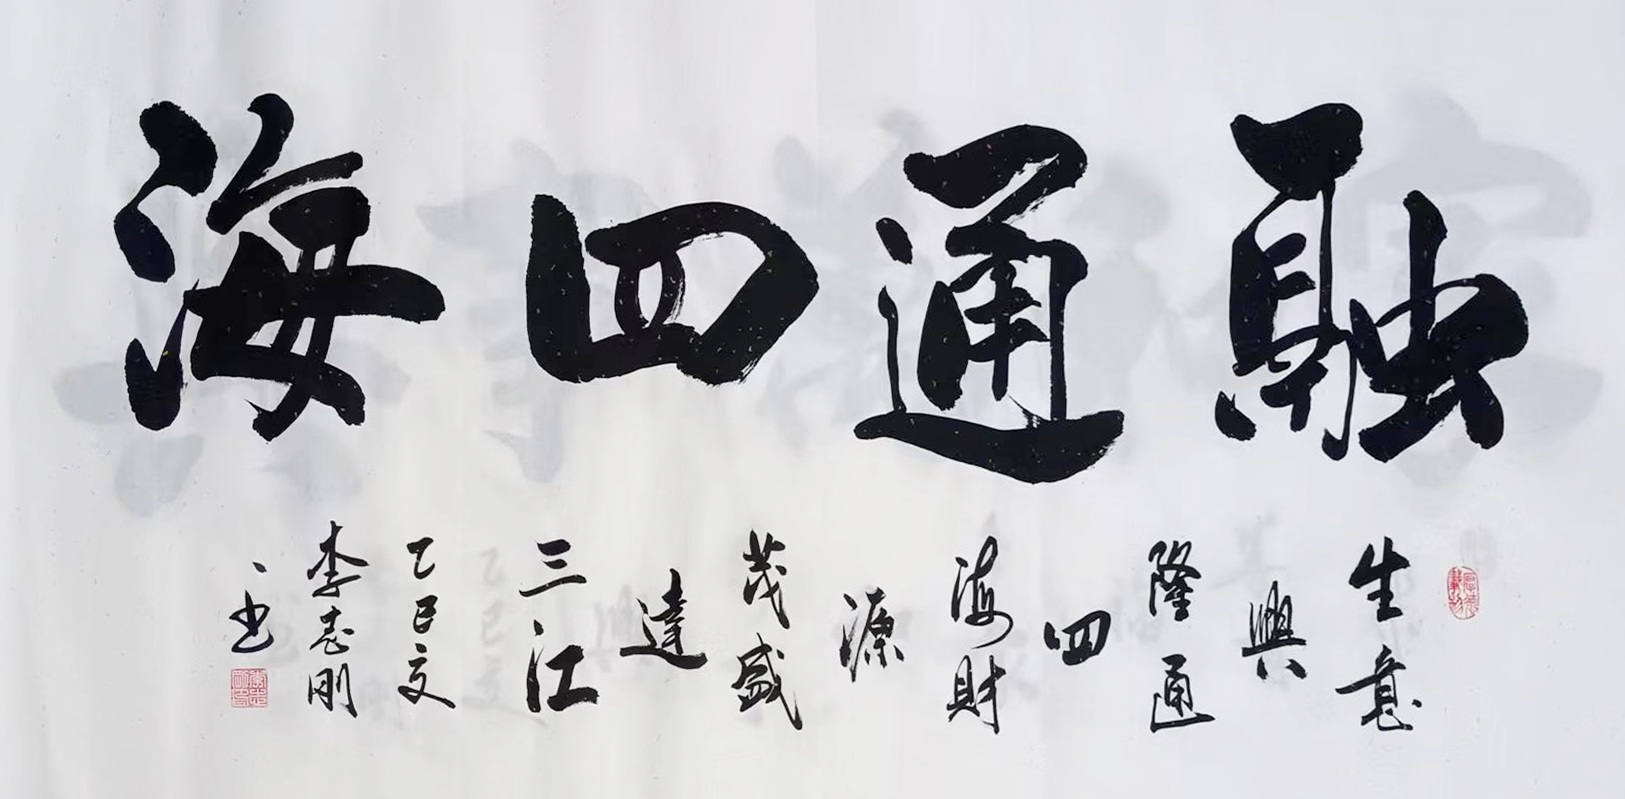 融通四海
生意
興
隆通
四
海財
源
茂盛
達
三江
乙巳
李志刚
书